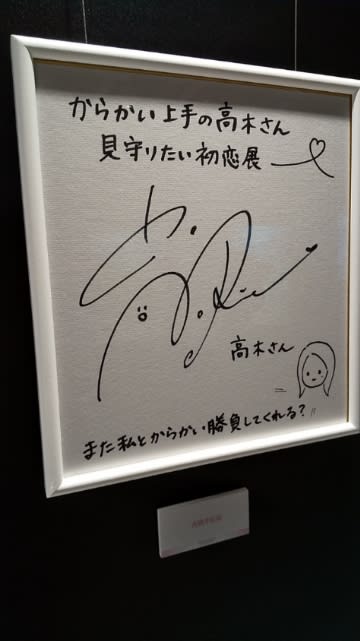 からかい上手の高木さん
見守りたい初恋展
高木さん
また私とからかい勝負してくれる?